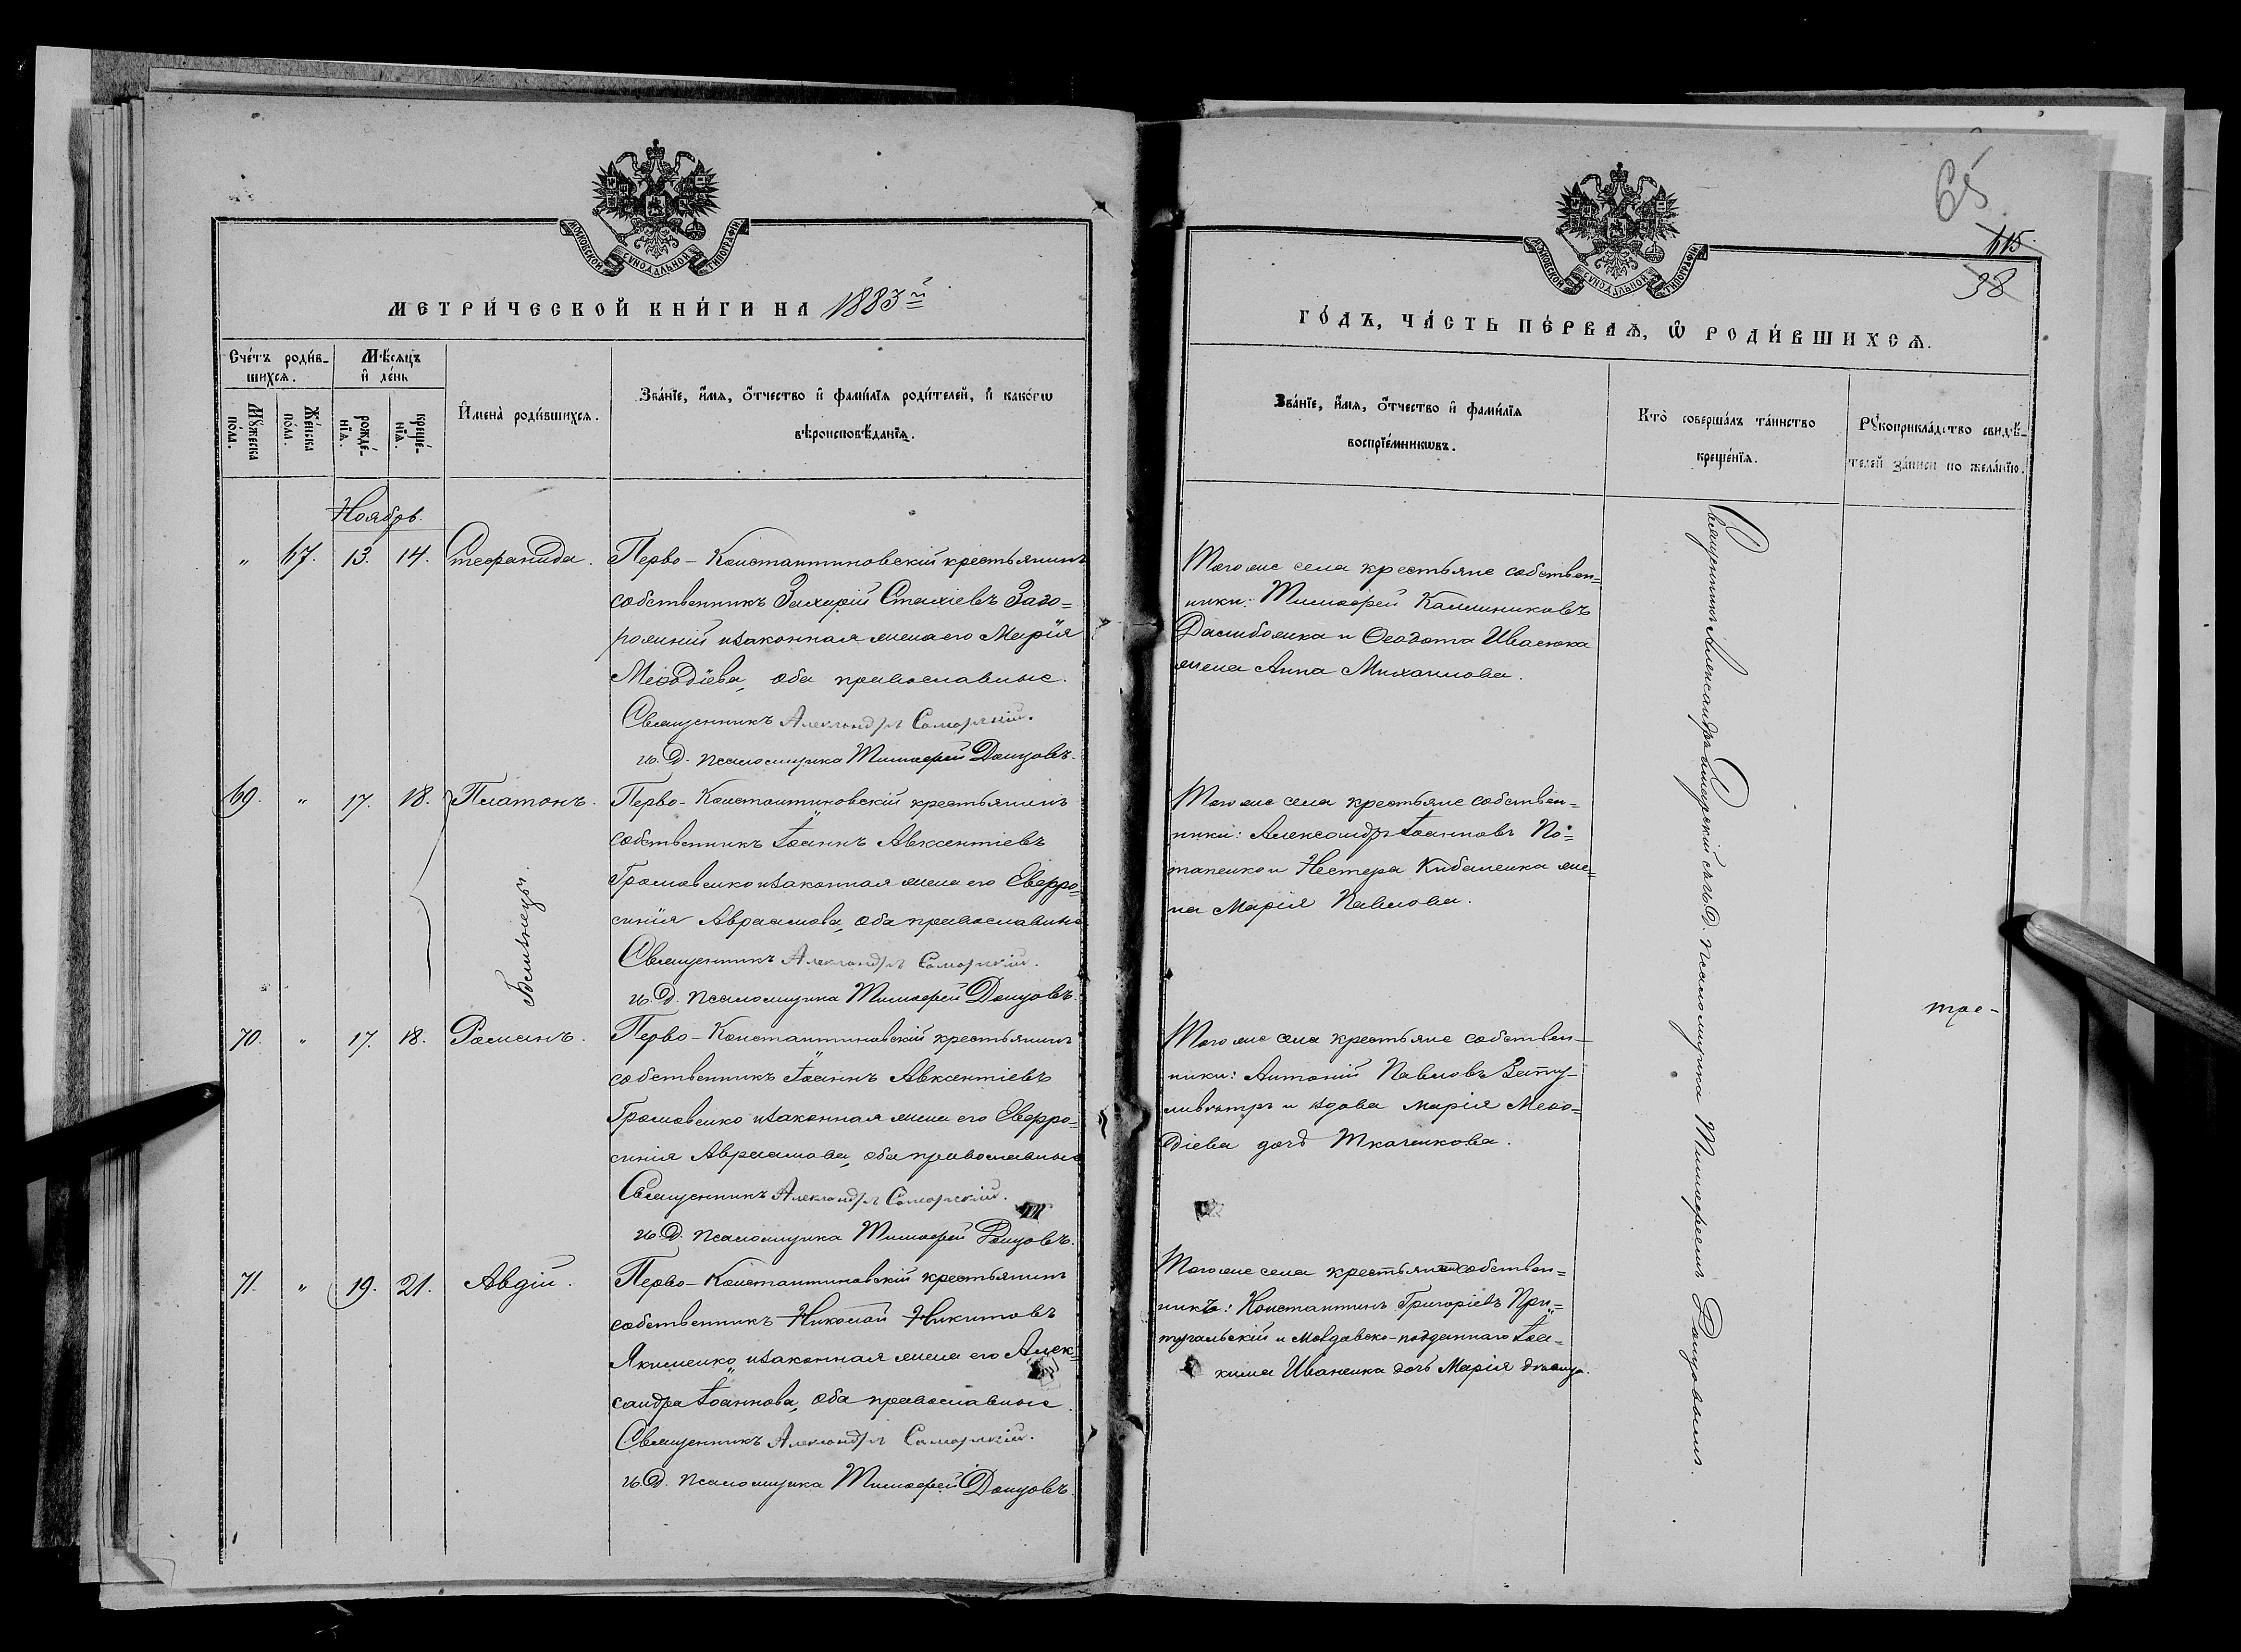 МОСКОВСКОЙ СУНОДАЛЬНОЙ ТИПОГРАФІИ
МЕТРИ́ЧЕСКОЙ КНИ́ГИ НА 1883й
Сче́тъ роди́в-
шихсѧ.
Мѣ́сѧцъ
и де́нь
Мꙋ́жеска по́ла.
Же́нска по́ла.
рожде́-
нїѧ.
креще́-
нїѧ.
Имена̀ роди́вшихсѧ.
Зва́нїе, и́мѧ, о́тчество и фами́лїѧ роди́телей, и како́гѡ
вѣроисповѣ́данїѧ.
Ноябрь.
" 67. 13. 14. Стефанида.
Перво-Константиновскій крестьянинъ
собственникъ Захарій Стахіевъ Заго=
рожній изаконная жена его Марія
Меѳодіева, оба православные.
Священникъ Александръ Самарскій.
и. д. псаломщика Тимоѳей Донцовъ.
69. " 17. 18. Платонъ.
Близнецы.
Перво-Константиновскій крестьянинъ
собственникъ Іоаннъ Авксентіевъ
Громовенко изаконная жена его Евфро=
синія Авраамова, оба православные
Священникъ Александръ Самарскій.
и. д. псаломщика Тимоѳей Донцовъ.
70. " 17. 18. Романъ.
Перво-Константиновскій крестьянинъ
собственникъ Іоаннъ Авксентіевъ
Громовенко изаконная жена его Евфро=
синія Авраамова, оба православные
Священникъ Александръ Самарскій.
и. д. псаломщика Тимоѳей Донцовъ.
71. " 19. 21. Авдій.
Перво-Константиновскій крестьянинъ
собственникъ Николай Никитовъ
Якименко изаконная жена его Алек=
сандра Іоаннова, оба православные.
Священникъ Александръ Самарскій.
и. д. псаломщика Тимоѳей Донцовъ.
65
115
38
МОСКОВСКОЙ СУНОДАЛЬНОЙ ТИПОГРАФІИ
ГО́ДЪ, ЧА́СТЬ ПЕ́РВАѦ, Ѡ РОДИ́ВШИХСѦ.
Зва́нїе, и́мѧ, о́тчество и фами́лїѧ
воспрїе́мникѡвъ.
Кто̀ соверша́лъ та́инство
креще́нїѧ.
Рꙋкоприкла́дство свидѣ́-
телей за́писи по жела́нїю.
Тогоже села крестьяне собствен=
ники: Тимоѳей Каллиниковъ
и Ѳеодота Ивасюка
жена Анна Михаилова.
Тогоже села крестьяне собствен=
ники: Александръ Іоанновъ По=
тапенко и Нестера Кибаленка же=
на Марія Павлова.
Тогоже села крестьяне собствен-
ники: Антоній Павловъ Зату-
ливѣтръ и вдова Марія Меѳо=
діева дочь Ткаченкова.
Тогоже села крестьянинъ собствен=
никъ: Константинъ Григоріевъ При=
тугальскій и Молдавско-подданнаго Іоа-
кима Иваненка дочь Марія дѣвица.
Священникъ Александръ Самарскій съ и. д. псаломщика Тимоѳеемъ Донцовымъ.